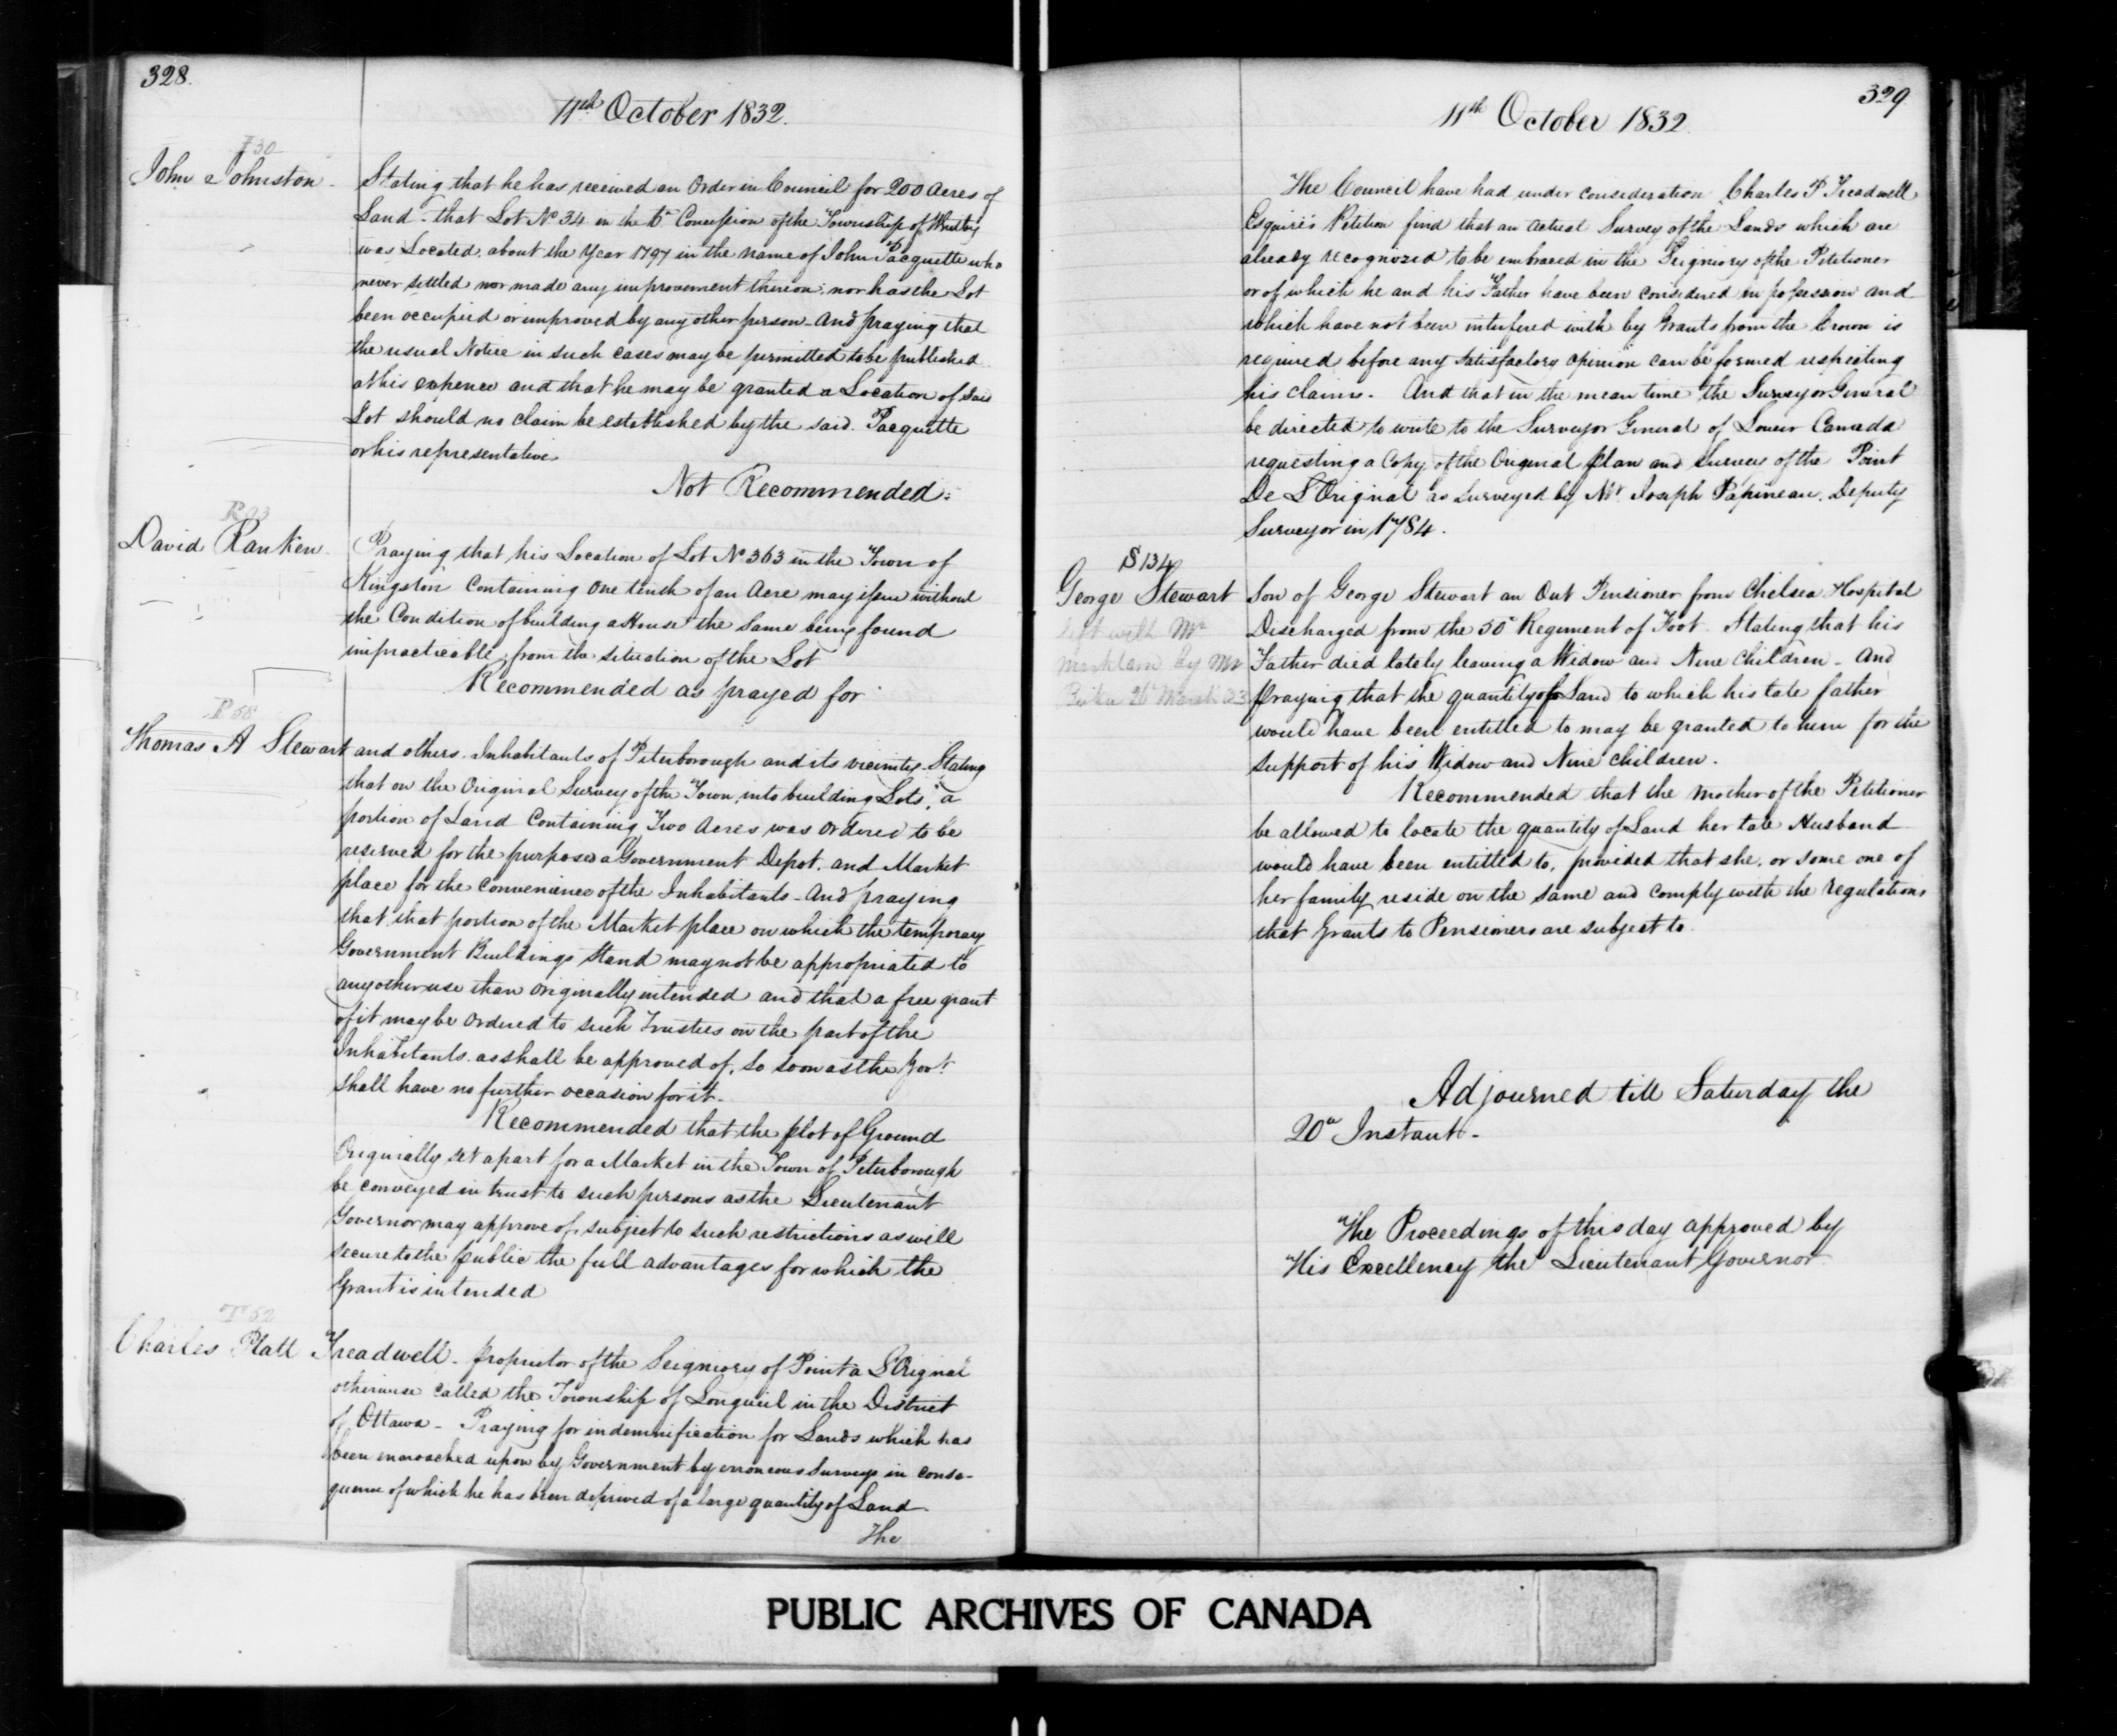 328.
11th October 1832.
J 30
John Johnston. Stating that he has received an Order in Council for 200 Acres of
Land - that Lot No 34 in the 6th Concession of the Township of Whitby
was Located about the Year 1797 in the name of John Pacquette who
never settled nor made any improvement thereon; nor has the Lot
been occupied or improved by any other person - And praying that
the usual Notice in such cases may be permitted to be published
at his expence and that he may be granted a Location of said
Lot should no claim be established by the said Pacquette
or his representative
Not Recommended.
David Ranken. Praying that his Location of Lot No 363 in the Town of
Kingston Containing One tenth of an Acre may issue without
the Condition of building a House the Same being found
impracticable from the situation of the Lot
Recommended as prayed for
P 58
Thomas A Stewart and others. Inhabitants of Peterborough and its vicinity. Stating
that on the Original Survey of the Town into building Lots, a
portion of Land Containing Two Acres was ordered to be
reserved for the purposes a Government Depot, and Market
place for the Convenience of the Inhabitants - And praying
that that portion of the Market place on which the temporary
Government Buildings stand may not be appropriated to
any other use than originally intended and that a free grant
of it may be Ordered to such Trustees on the part of the
Inhabitants as shall be approved of, so soon as the Govt
shall have no further occasion for it.
Recommended that the plot of Ground
Originally set apart for a Market in the Town of Peterborough
be conveyed in trust to such persons as the Lieutenant
Governor may approve of, subject to such restrictions as will
secure to the public the full advantages for which the
Grant is intended
T 52
Charles Platt Treadwell. Proprietor of the Seigniory of Point a L'Orignal
otherwise called the Township of Longueil in the District
of Ottawa - Praying for indemnification for Lands which has
been encroached upon by Government by erroneous Surveys in conse-
quence of which he has been deprived of a large quantity of Land
The
329
11th October 1832
The Council have had under consideration Charles P Treadwell
Esquire's Petition find that an actual Survey of the Lands which are
already recognized to be embraced in the Seigniory of the Petitioner
or of which he and his Father have been considered in possession and
which have not been interfered with by Grants from the Crown is
required before any satisfactory opinion can be formed respecting
his claims. And that in the mean time the Surveyor General
be directed to write to the Surveyor General of Lower Canada
requesting a Copy of the Original plan and Survey of the Point
De L'Orignal as surveyed by Mr Joseph Papineau. Deputy
Surveyor in 1784.
S 134
George Stewart Son of George Stewart an Out Pensioner from Chelsea Hospital
left with Mr Discharged from the 50th Regiment of Foot. Stating that his
by Mr Father died lately leaving a Widow and Nine Children - And
26 March 33 praying that the quantity of Land to which his late father
would have been entitled to may be granted to him for the
support of his Widow and Nine Children.
Recommended that the Mother of the Petitioner
be allowed to locate the quantity of Land her late Husband
would have been entitled to, provided that she, or some one of
her family reside on the same and comply with the regulations
that Grants to Pensioners are subject to.
Adjourned till Saturday the
20th Instant.
The Proceedings of this day approved by
His Excellency the Lieutenant Governor
PUBLIC ARCHIVES OF CANADA